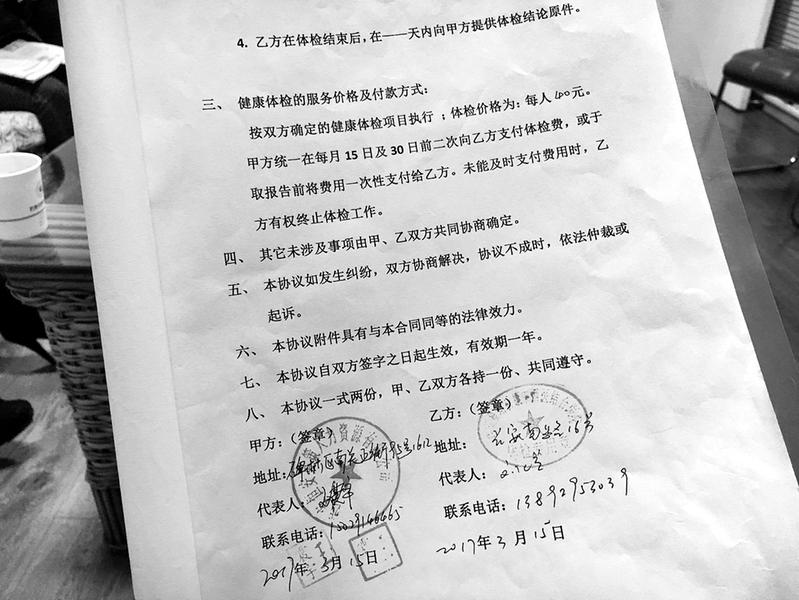 4. 乙方在体检结束后，在——天内向甲方提供体检结论原件。
三、 健康体检的服务价格及付款方式：
按双方确定的健康体检项目执行 ；体检价格为：每人 400 元。
甲方统一在每月 15 日及 30 日前二次向乙方支付体检费，或于
取报告前将费用一次性支付给乙方。未能及时支付费用时，乙
方有权终止体检工作。
四、 其它未涉及事项由甲、乙双方共同协商确定。
五、 本协议如发生纠纷，双方协商解决，协议不成时，依法仲裁或
起诉。
六、 本协议附件具有与本合同同等的法律效力。
七、 本协议自双方签字之日起生效，有效期一年。
八、 本协议一式两份，甲、乙双方各持一份、共同遵守。
甲方：（签章）
地址：碑林区南关正街95号1612
代表人：
联系电话：15029146665
2017年 3月 15日
乙方：（签章）
地址： 长安南路16号
代表人：
联系电话：13892953039
2017年 3 月 15日